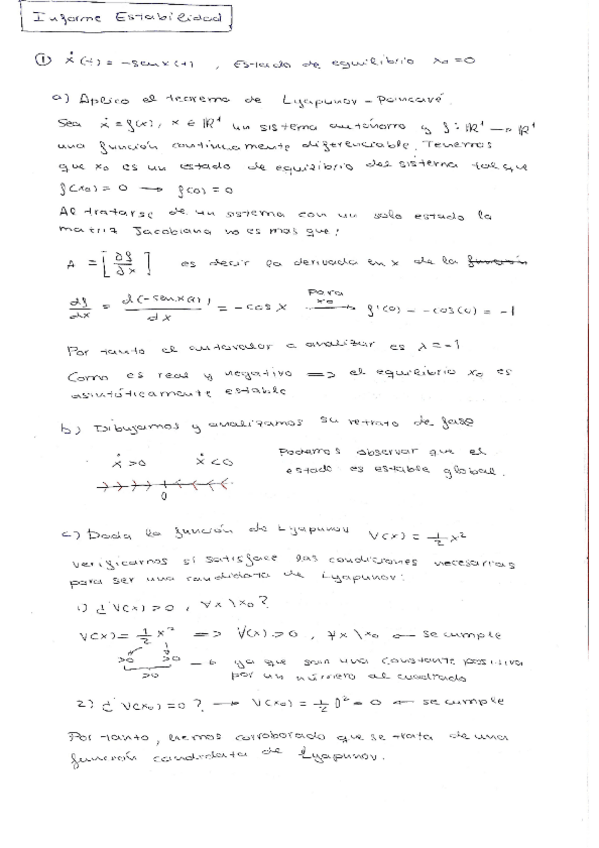 Informe Estabilidad
① ẋ(t) = -sen x(t) , Estado de equilibrio x₀ = 0
a) Aplico el teorema de Lyapunov - Poincaré.
Sea ẋ = f(x), x ∈ ℝ¹ un sistema autónomo y f: ℝ¹ → ℝ¹
una función continuamente diferenciable. Tenemos
que x₀ es un estado de equilibrio del sistema tal que
f(x₀) = 0 → f(0) = 0
Al tratarse de un sistema con un solo estado la
matriz Jacobiana no es mas que:
A = [∂f/∂x] es decir la derivada en x de la función
df/dx = d(-sen x(t))/dx = -cos x →(para x₀) f'(0) = -cos(0) = -1
Por tanto el autovalor a analizar es λ = -1
Como es real y negativo ⇒ el equilibrio x₀ es
asintóticamente estable
b) Dibujamos y analizamos su retrato de fase
ẋ > 0 ẋ < 0
0
Podemos observar que el
estado es estable global.
c) Dada la función de Lyapunov V(x) = ½ x²
verificamos si satisface las condiciones necesarias
para ser una candidata de Lyapunov:
1) ¿ V(x) > 0 , ∀x \ x₀ ?
V(x) = ½ x² ⇒ V(x) > 0 , ∀x \ x₀ ← se cumple
>0 >0 → ya que son una constante positiva
>0 por un número al cuadrado
2) ¿ V(x₀) = 0 ? → V(x₀) = ½ 0² = 0 ← se cumple
Por tanto, hemos corroborado que se trata de una
función candidata de Lyapunov.